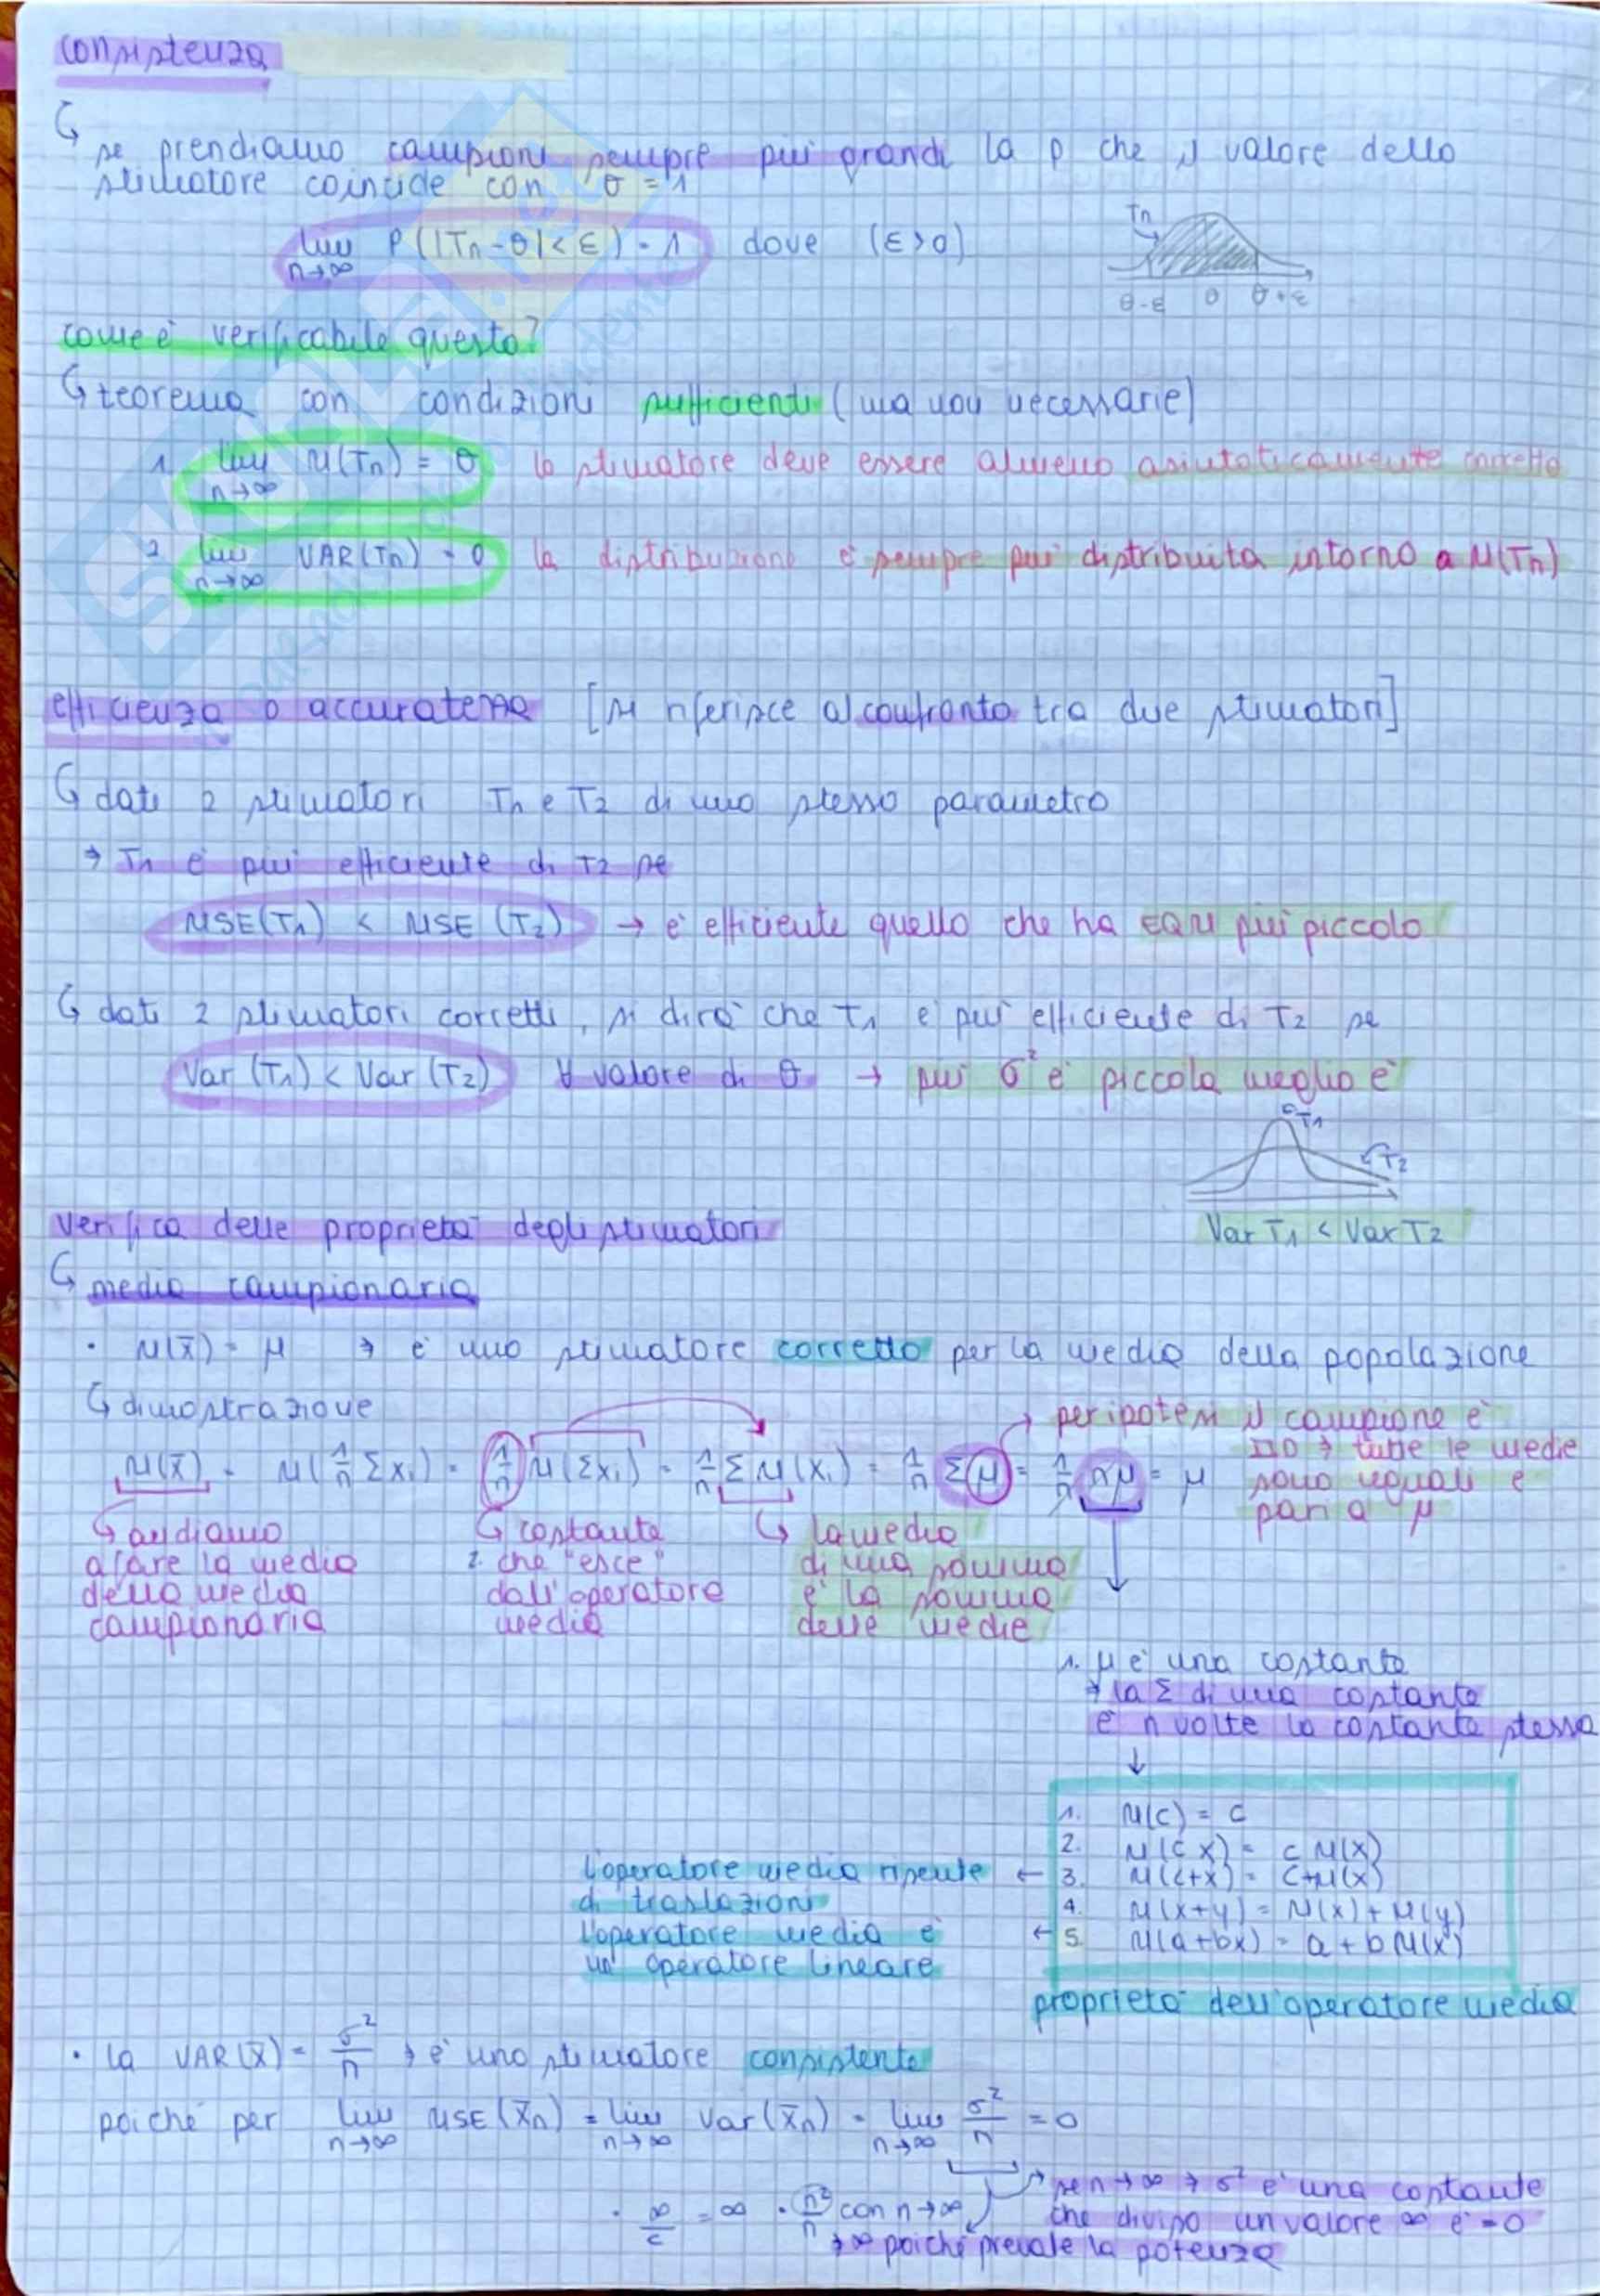 consistenza
↳ se prendiamo campioni sempre più grandi la p che il valore dello
stimatore coincide con θ = 1
lim n→∞ P(|Tn - θ| < ε) = 1 dove (ε>0)
Tn
θ-ε θ θ+ε
come è verificabile questo?
↳ teorema con condizioni sufficienti (ma non necessarie)
1. lim n→∞ M(Tn) = θ lo stimatore deve essere almeno asintoticamente corretto
2. lim n→∞ VAR(Tn) = 0 la distribuzione è sempre più distribuita intorno a M(Tn)
efficienza o accuratezza [si riferisce al confronto tra due stimatori]
↳ dati 2 stimatori T1 e T2 di uno stesso parametro
→ T1 è più efficiente di T2 se
MSE(T1) < MSE (T2) → è efficiente quello che ha EQM più piccolo
↳ dati 2 stimatori corretti, si dirà che T1 è più efficiente di T2 se
Var (T1) < Var (T2) ∀ valore di θ → più σ² è piccola meglio è
T1
T2
Var T1 < Var T2
verifica delle proprietà degli stimatori
↳ media campionaria
· M(x̄) = μ → è uno stimatore corretto per la media della popolazione
↳ dimostrazione
→ per ipotesi il campione è
IID → tutte le medie
sono uguali e
pari a μ
M(x̄) = M(1/n Σxi) = 1/n M(Σxi) = 1/n Σ M(xi) = 1/n Σ μ = 1/n nμ = μ
↳ andiamo
a fare la media
della media
campionaria
↳ costante
2. che "esce"
dall'operatore
media
↳ la media
di una somma
è la somma
delle medie
1. μ è una costante
→ la Σ di una costante
è n volte la costante stessa
↓
1. M(c) = c
2. M(c x) = c M(x)
l'operatore media risente ← 3. M(c+x) = c+M(x)
di traslazioni
4. M(x+y) = M(x) + M(y)
l'operatore media è ← 5. M(a+bx) = a + b M(x)
un operatore lineare
proprietà dell'operatore media
· la VAR(x̄) = σ²/n → è uno stimatore consistente
poiché per lim n→∞ MSE(x̄n) = lim n→∞ Var(x̄n) = lim n→∞ σ²/n = 0
→ se n→∞ → σ² è una costante
che diviso un valore ∞ è = 0
· ∞/c = ∞ · n²/n con n→∞
→ ∞ poiché prevale la potenza